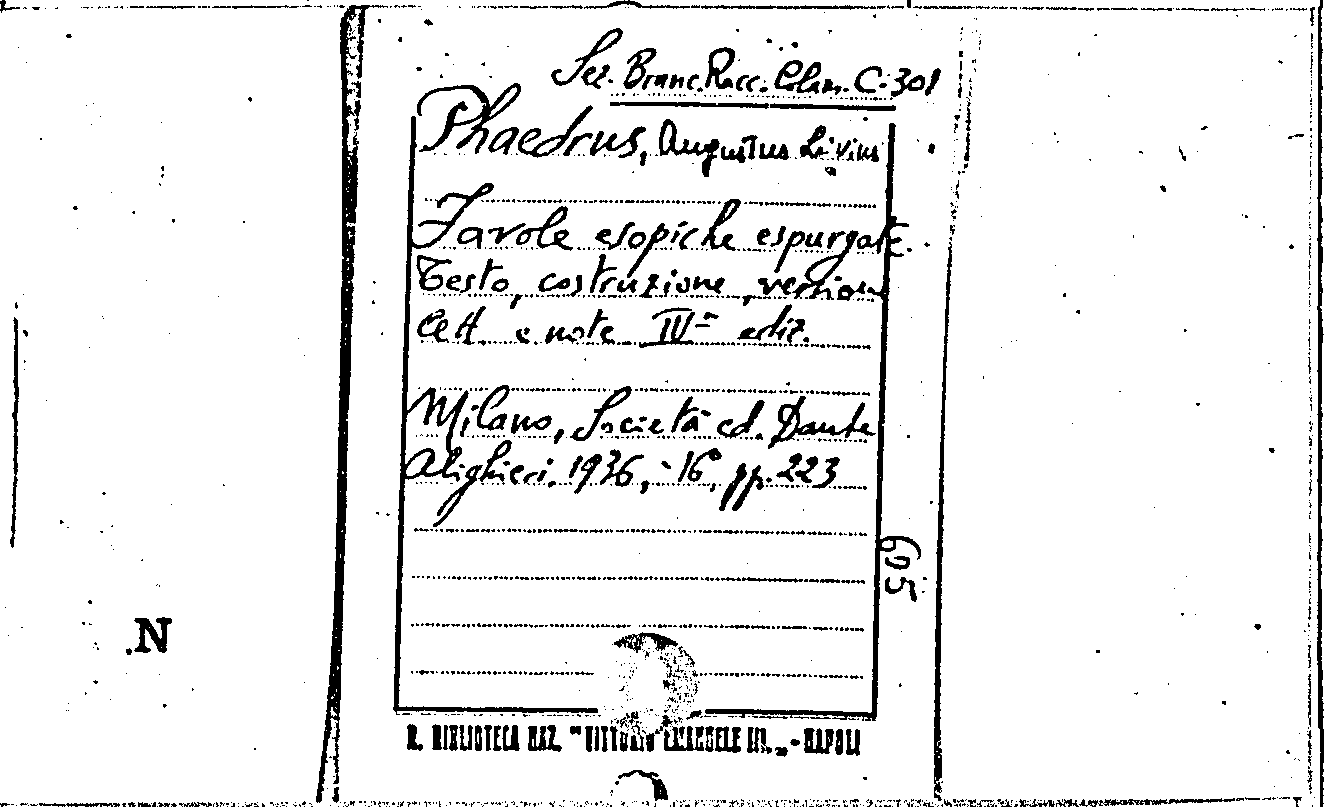 Sez. Branc. Racc. Colam. C. 301
Phaedrus, Augustus Livius
Favole esopiche espurgate.
Testo, costruzione, versione
lett. e note IVª ediz.
Milano, Società ed. Dante
Alighieri. 1936, -16°, pp. 223
605
.N
R. BIBLIOTECA NAZ. "VITTORIO EMANUELE III." - NAPOLI